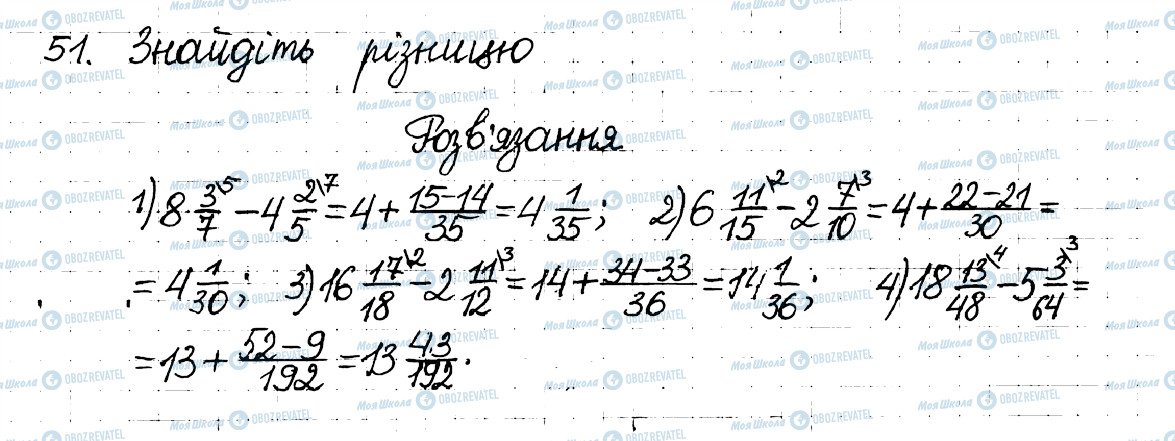 51. Знайдіть різницю
Розв'язання
1) 8 3/7 \5 − 4 2/5 \7 = 4 + (15−14)/35 = 4 1/35; 2) 6 11/15 \2 − 2 7/10 \3 = 4 + (22−21)/30 =
= 4 1/30; 3) 16 17/18 \2 − 2 11/12 \3 = 14 + (34−33)/36 = 14 1/36; 4) 18 13/48 \4 − 5 3/64 \3 =
= 13 + (52−9)/192 = 13 43/192.